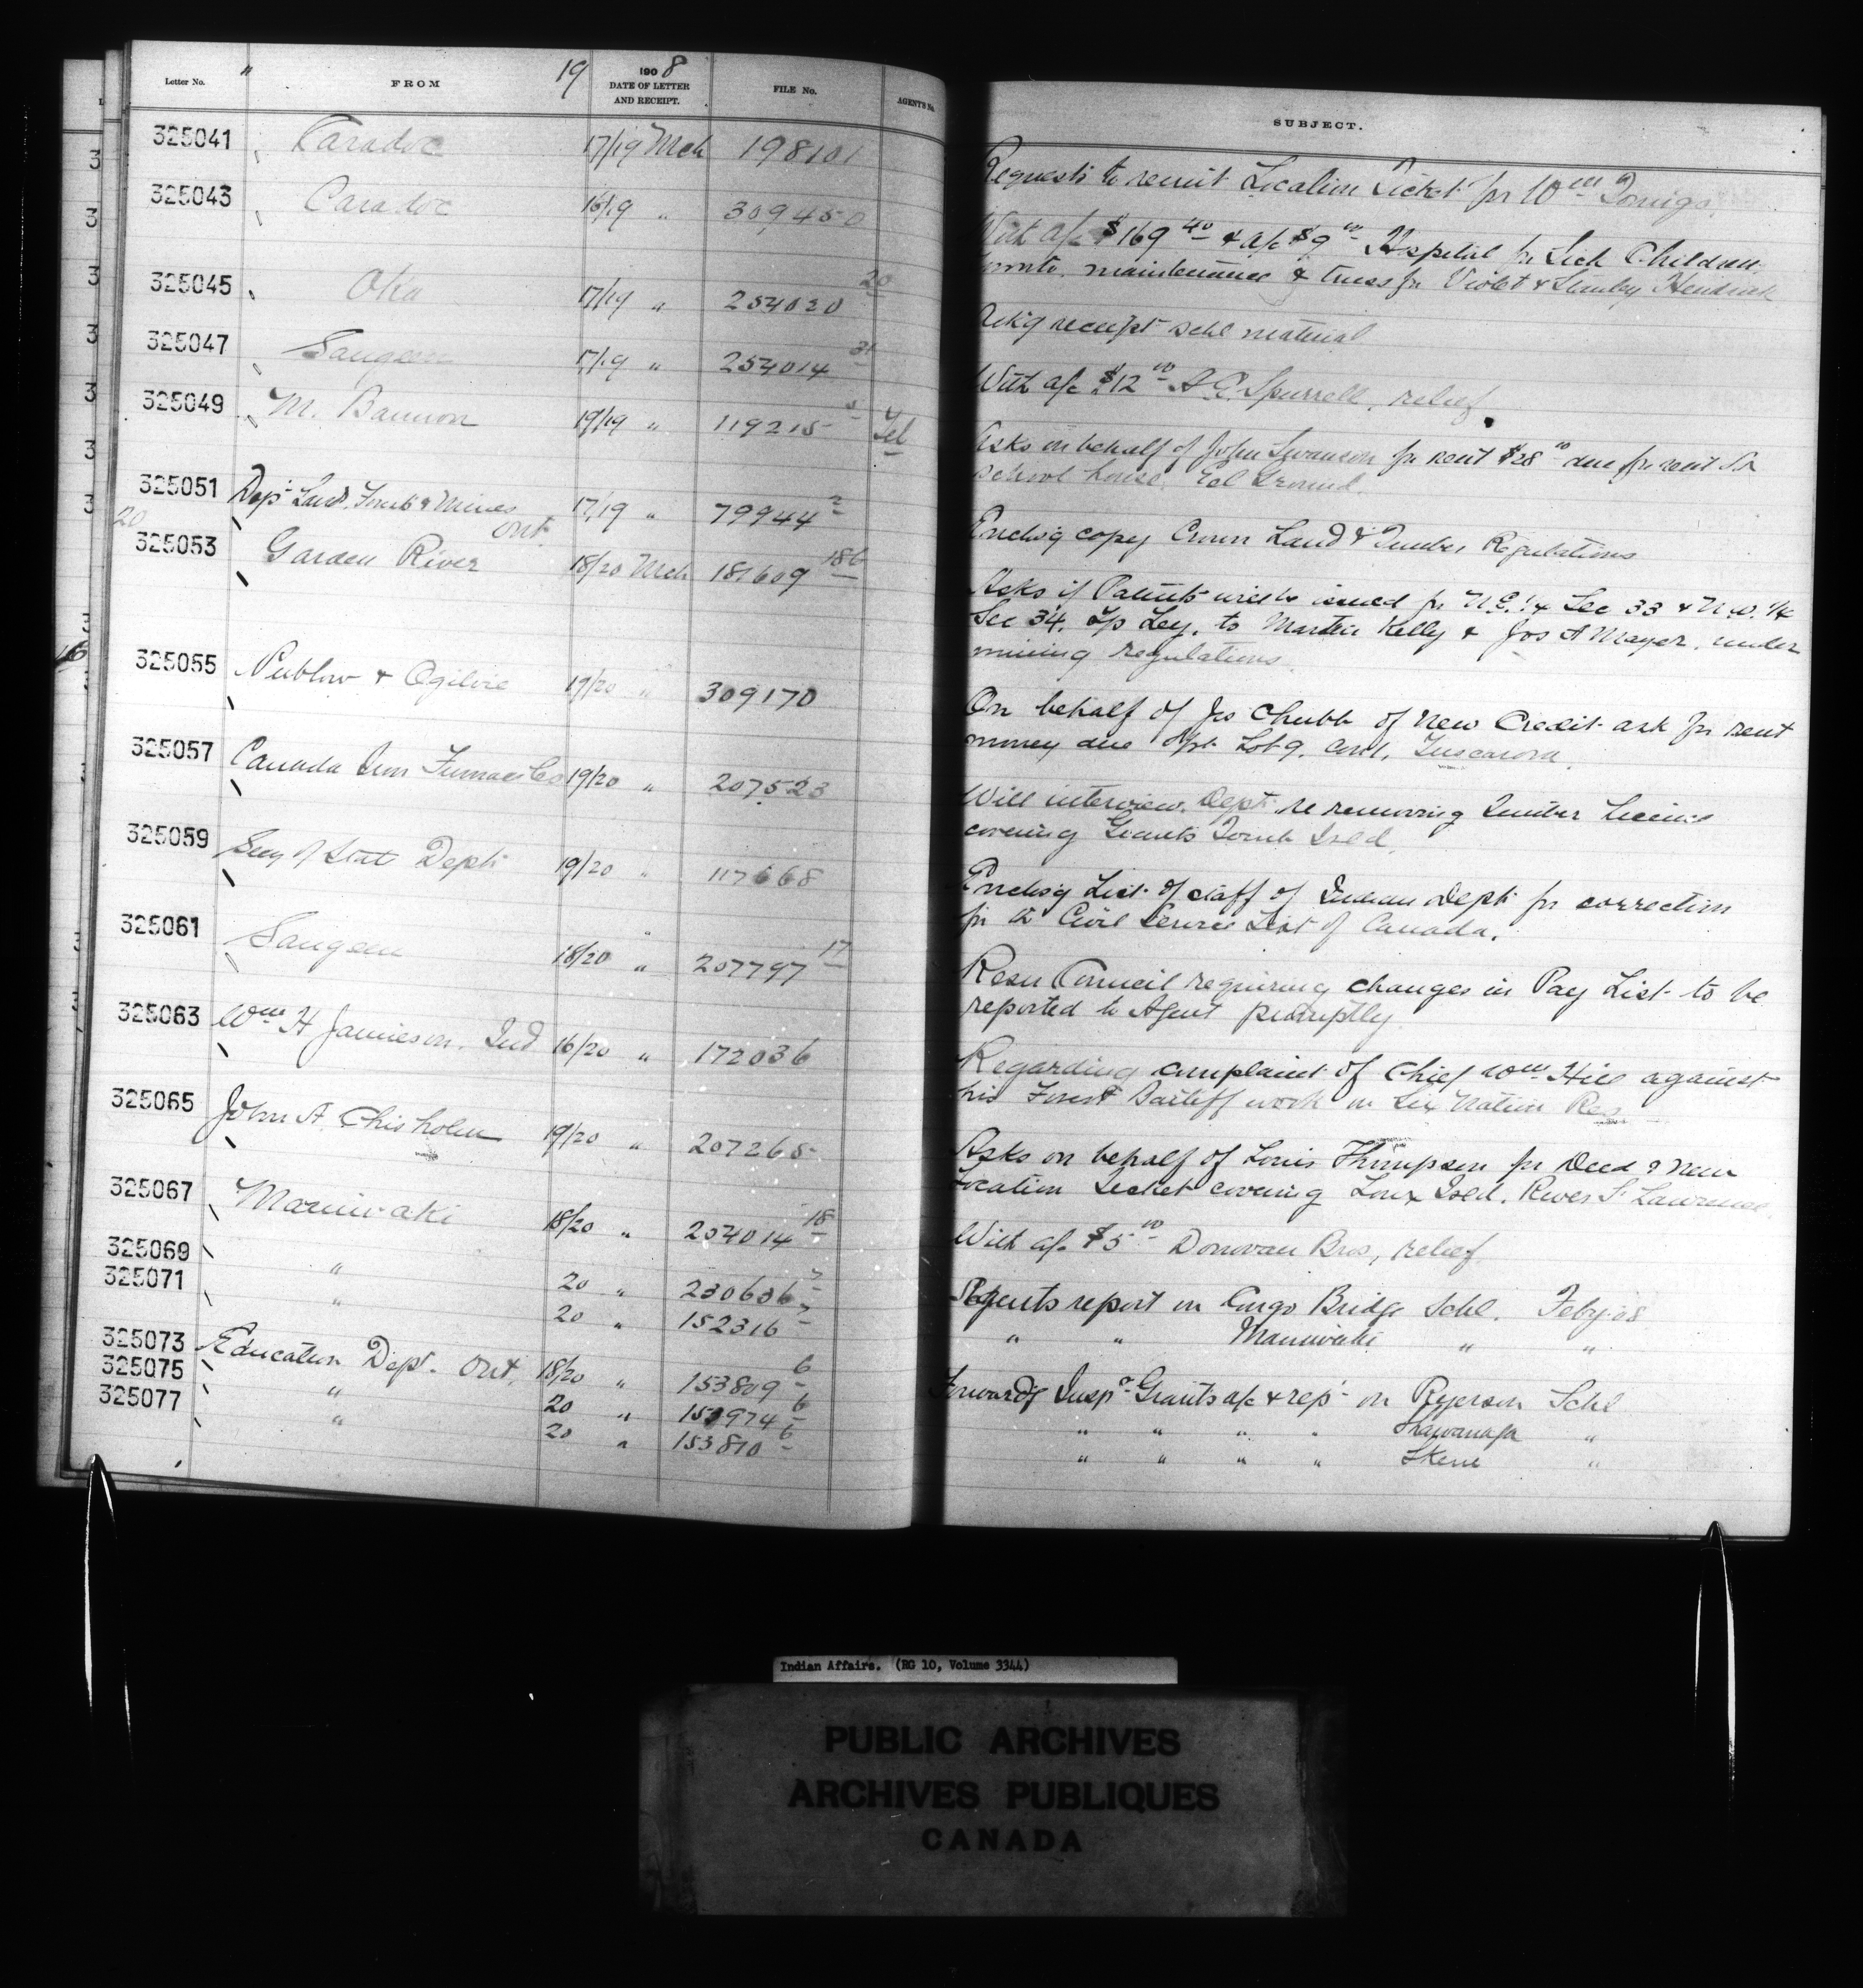 Letter No. " FROM 19 1908 DATE OF LETTER AND RECEIPT. FILE No. AGENT'S No. SUBJECT.
325041 Caradoc 17/19 Mch 198101 Requests to remit Location Ticket for Wm
325043 Caradoc 16/19 " 309450 With a/c $169 40 & a/c $9 00 Hospital for Sick Children
Toronto, maintenance & truss for Violet & Stanley Hendrick
325045 Oka 17/19 " 254020 20 Ackg receipt schl material
325047 Saugeen 17/19 " 254014 31 With a/c $12 00 Spurrell, relief
325049 M. Bannon 19/19 " 119215 Tel Asks on behalf of John Swanson for rent $28 00 due for rent
school house Eel Ground.
325051 Dept Lands Forests & Mines Ont 17/19 " 79944 2 Enclsg copy Crown Land & Timber Regulations
20
325053 Garden River 18/20 Mch 181609 186 Asks if Patents will be issued for N.E. 1/4 Sec 33 & N.W. 1/4
Sec 34, Tp Ley, to Martin Kelly & Jos A Mayer, under
mining regulations
325055 Publow & Ogilvie 19/20 " 309170 On behalf of Jos Chubb of New Credit ask for rent
money due pt. Lot 9, Con 1, Tuscarora.
325057 Canada Iron Furnace Co 19/20 " 207523 Will interview Dept. re renewing timber license
covering Giants Tomb Isld.
325059 Secy of State Dept 19/20 " 117668 Enclsg List of staff of Indian Dept for correction
for the Civil Service List of Canada.
325061 Saugeen 18/20 " 207797 17 Resn Council requiring changes in Pay List to be
reported to Agent promptly
325063 Wm H Jamieson, Ind 16/20 " 172036 Regarding complaint of Chief Wm Hill against
his Forest Bailiff work on Six Nation Res
325065 John A. Chisholm 19/20 " 207265 Asks on behalf of Louis Thompson for Deed & new
Location ticket covering Isld. River St Lawrence.
325067 Maniwaki 18/20 " 254014 18 With a/c $5 00 Donovan Bros, relief
325069 " 20 " 230636 Agents report on Congo Bridge Schl. Feby 08
325071 " 20 " 152316 " " Maniwaki " "
325073 Education Dept. Ont. 18/20 " 153809 6 Forwardg Insp Grants a/c & rept on Ryerson Schl
325075 " 20 " 153974 6 " " " " Shawanaga "
325077 " 20 " 153810 6 " " " " Skene "
Indian Affairs. (RG 10, Volume 3344)
PUBLIC ARCHIVES
ARCHIVES PUBLIQUES
CANADA